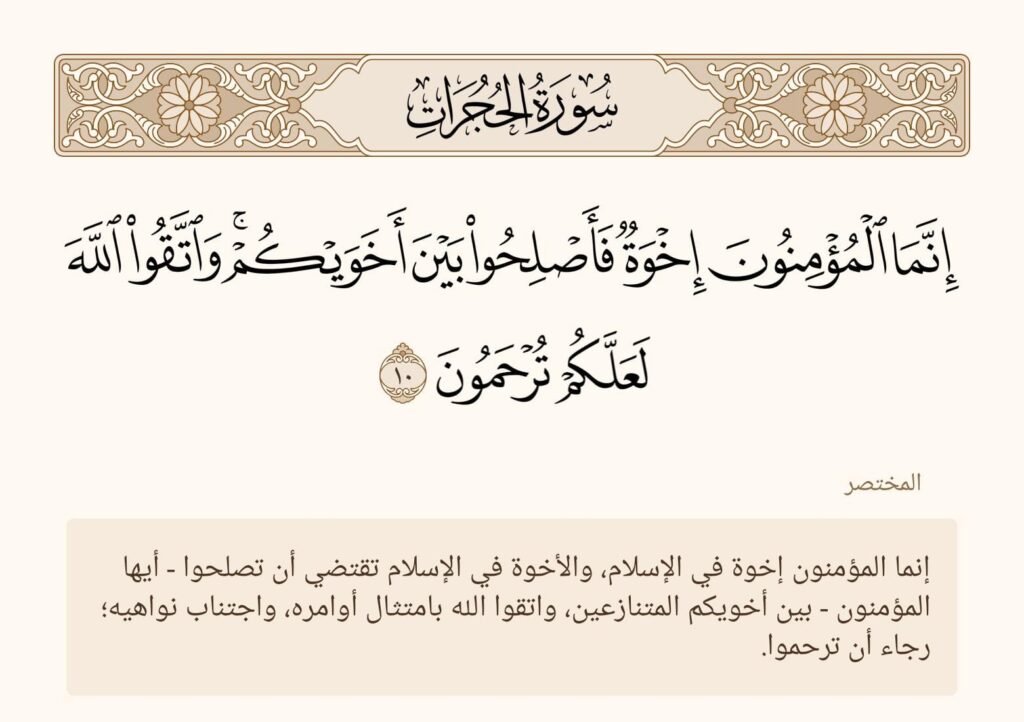 سُورَةُ الحُجُرَاتِ
إِنَّمَا ٱلْمُؤْمِنُونَ إِخْوَةٌ فَأَصْلِحُوا۟ بَيْنَ أَخَوَيْكُمْ ۚ وَٱتَّقُوا۟ ٱللَّهَ
لَعَلَّكُمْ تُرْحَمُونَ ١٠
المختصر
إنما المؤمنون إخوة في الإسلام، والأخوة في الإسلام تقتضي أن تصلحوا - أيها
المؤمنون - بين أخويكم المتنازعين، واتقوا الله بامتثال أوامره، واجتناب نواهيه؛
رجاء أن ترحموا.